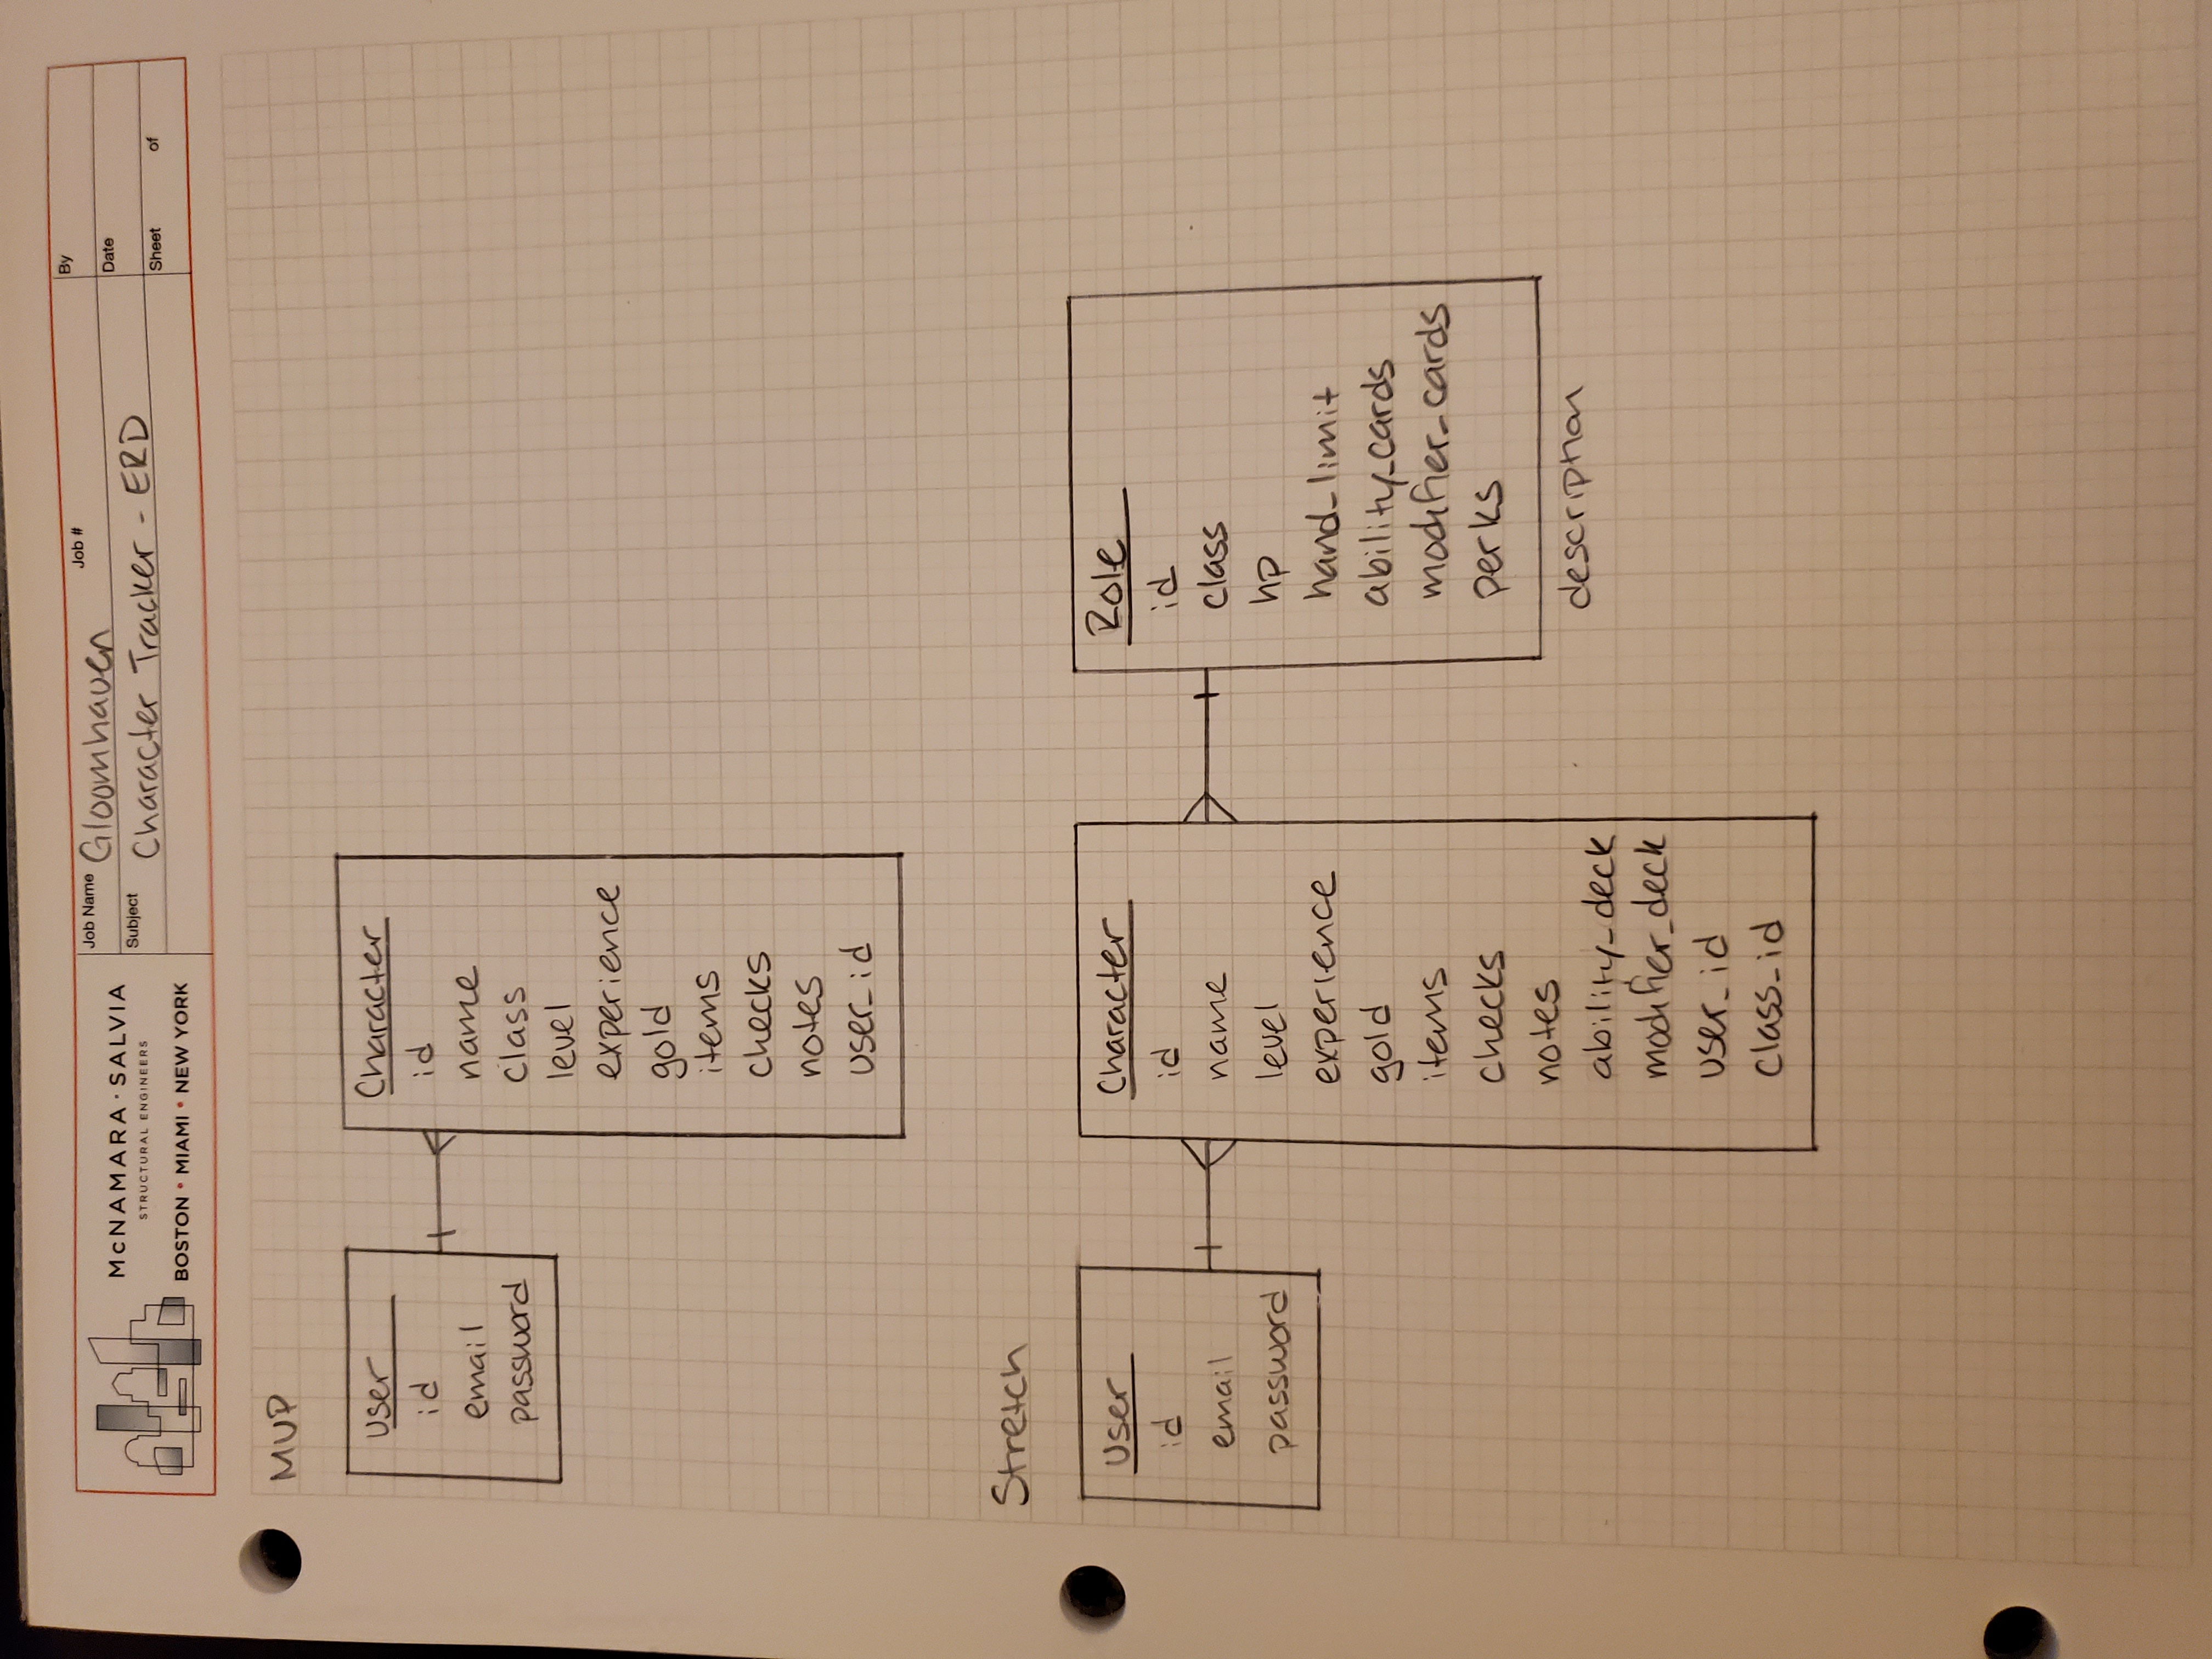 McNAMARA · SALVIA
STRUCTURAL ENGINEERS
BOSTON • MIAMI • NEW YORK
Job Name Gloomhaven Job #
Subject Character Tracker - ERD
By
Date
Sheet of
MVP
User
id
email
password
Character
id
name
class
level
experience
gold
items
checks
notes
user_id
Stretch
User
id
email
password
Character
id
name
level
experience
gold
items
checks
notes
ability_deck
modifier_deck
user_id
class_id
Role
id
class
hp
hand_limit
ability_cards
modifier_cards
perks
description